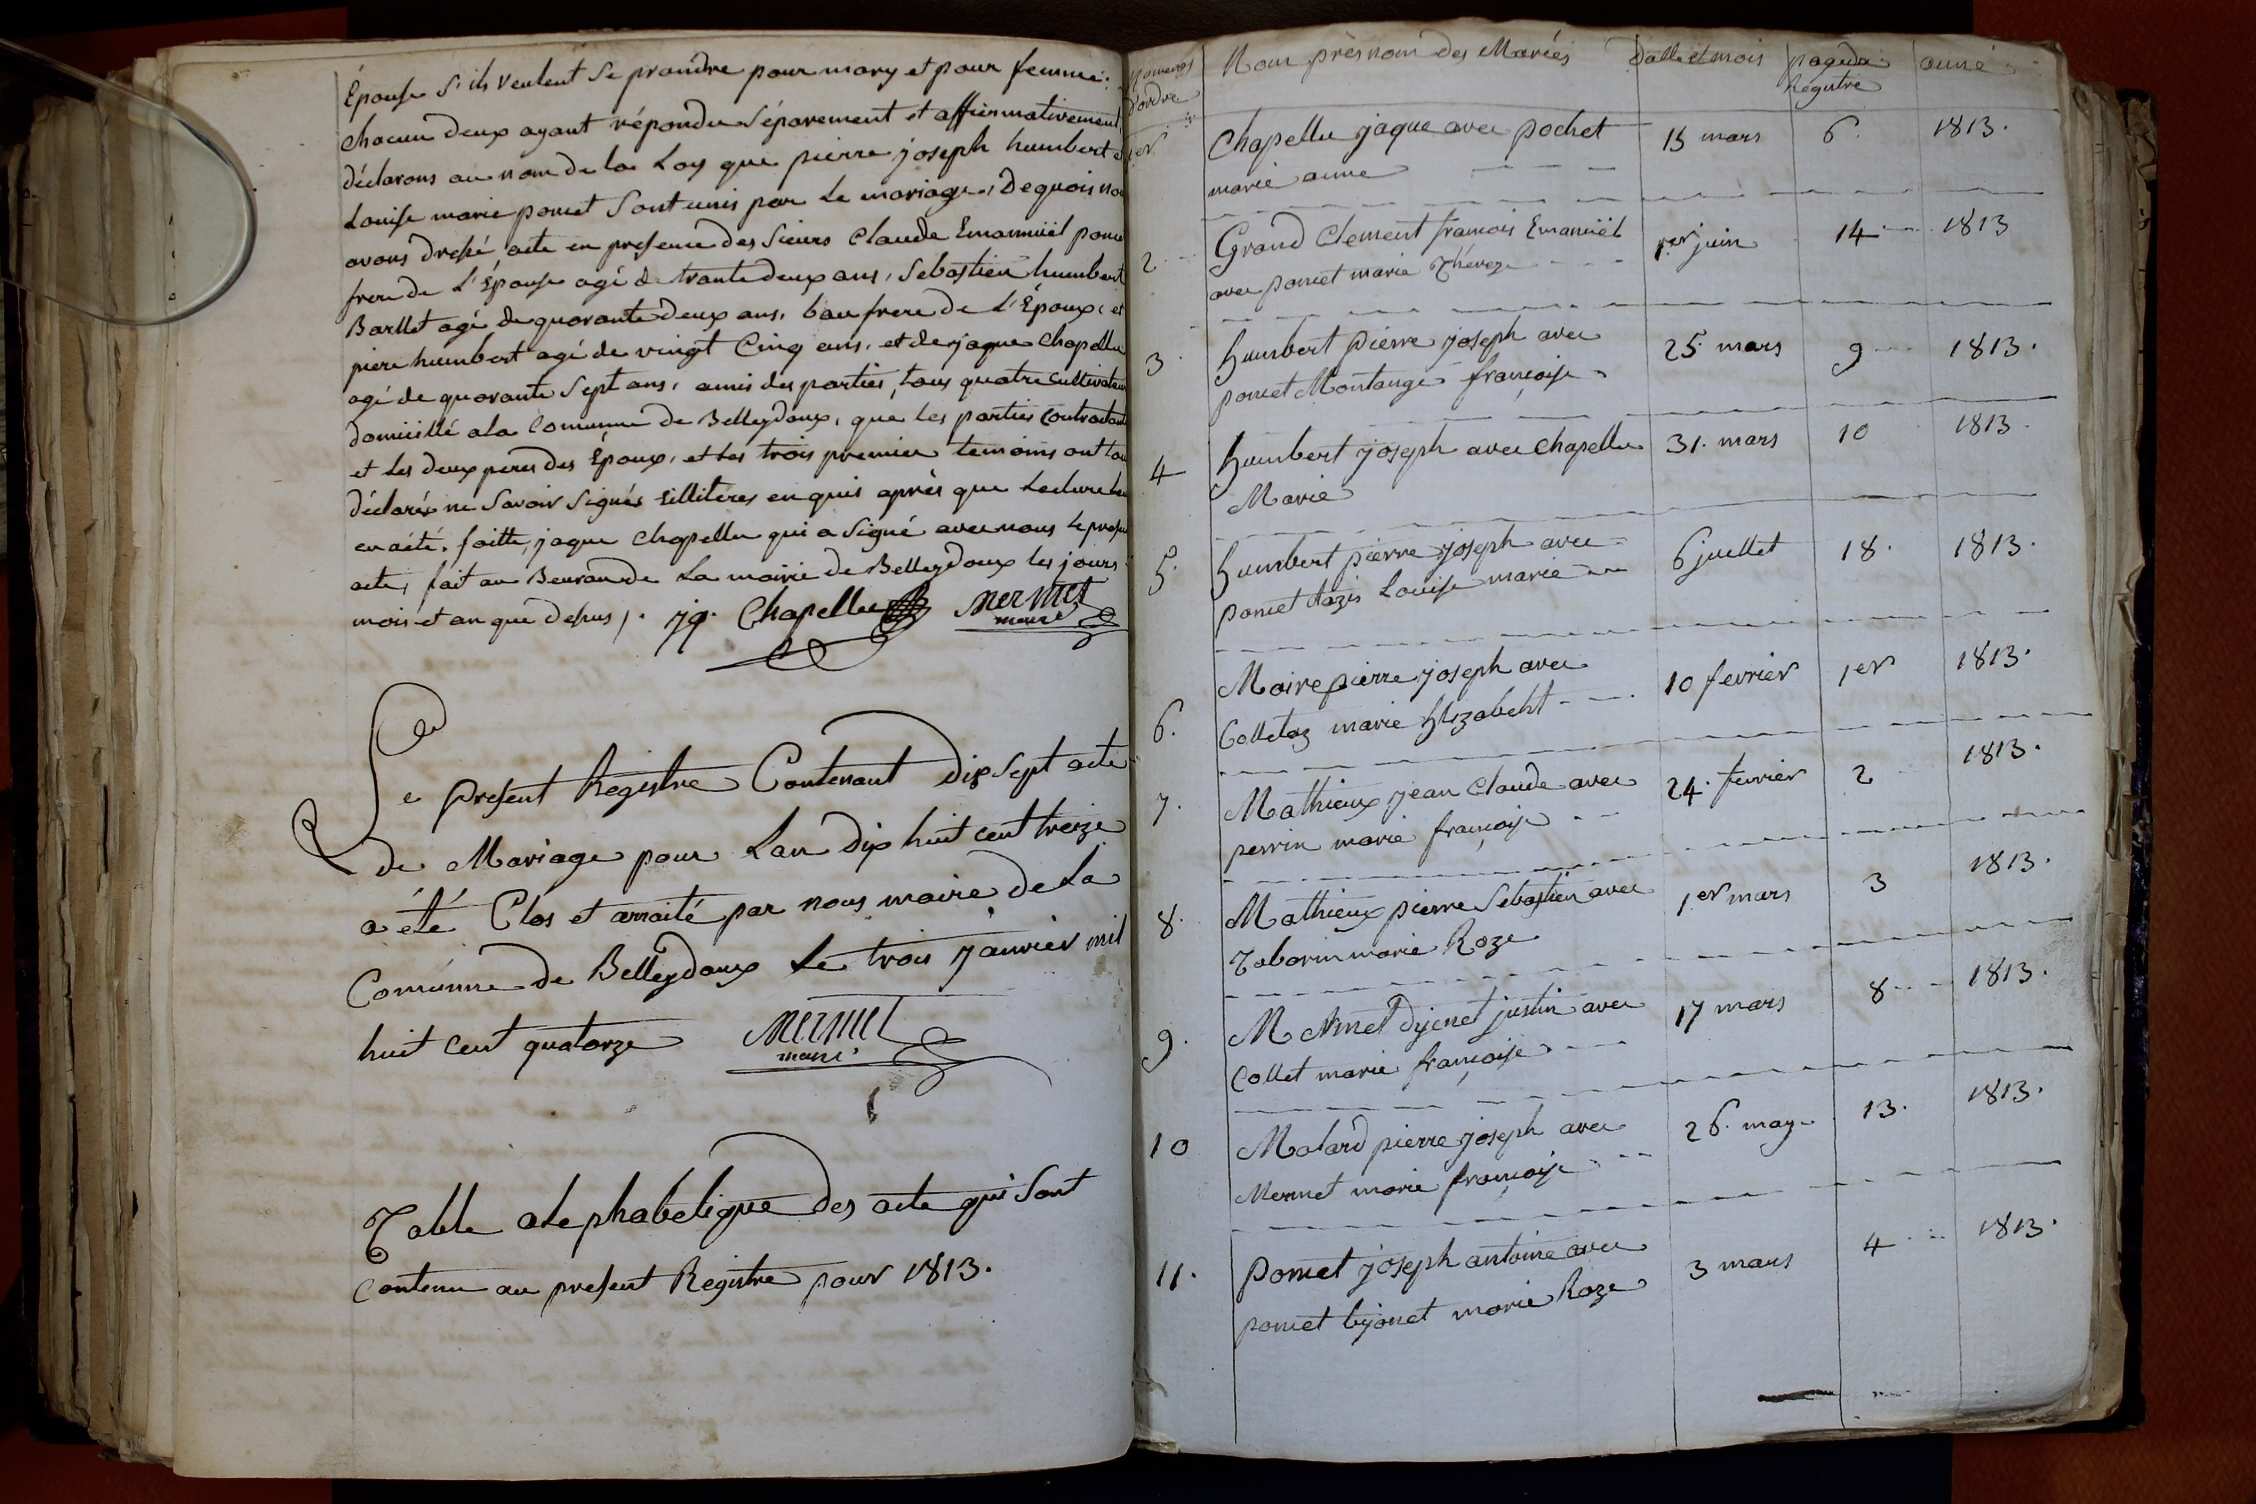 Épouse s'ils veulent se prandre pour mary et pour femme:
chacun deux ayant répondu Séparement et affirmativement
déclarons au nom de la Loy que pierre joseph humbert et
Louise marie poncet Sont unis par le mariage, De quois nous
avons dressé acte en presence des Sieurs Claude Emanuiël poncet
frere de L'Épouse agé de trante deux ans, Sebastien humbert
Barllet agé de quarante deux ans, bau frere de L'Époux, et
piere humbert agé de vingt Cinq ans, et de jaque Chapellu
agé de quarante Sept ans, amis des parties, tous quatre Cultivateurs
domicillé a la Comunne de Belleydoux, que les parties Contractante
et les deux peres des Époux, et les trois premier temoins ont tous
déclarés ne Savoir Signés
en a été faitte, jaque Chapellu qui a Signé avec nous le present
acte, fait au Beurau de La mairie de Belleydoux les jours
mois et an que desus /. jq. Chapellu Mermet
maire
Le present Registre Contenant Dix Sept acte
de Mariage pour Lan Dix huit cent treize
a été Clos et arraité par nous maire de La
Comunne de Belleydoux Le trois Janvier mil
huit Cent quatorze Mermet
maire
Table alephabetique des acte qui Sont
Contenu au present Registre pour 1813.
Numeros d'ordre Nom prènom des Mariés Datte et mois page du Registre anné
1er Chapellu jaque avec pochet 15 mars 6. 1813.
marie anne
2 Grand Clement francois Emanuiël 1er juin 14 1813
avec poncet marie Théreze
3 humbert pierre joseph avec 25. mars 9 1813.
poncet Montange françoise
4 humbert joseph avec Chapellu 31. mars 10 1813.
Marie
5. humbert pierre joseph avec 6 juillet 18. 1813.
poncet Louise marie
Maire pierre joseph avec 10 fevrier 1er 1813.
6. Colletaz marie Elizabeht
7. Mathieux jean Claude avec 24. fevrier 2 1813.
perrin marie françoise
8. Mathieux pierre Sebastien avec 1er mars 3 1813.
Taborin marie Roze
9. Mermet dijenet justin avec 17 mars 8 1813.
Collet marie françoise
10 Molard pierre joseph avec 26. may 13. 1813.
Mermet marie françoise
11. poncet joseph antoine avec 3 mars 4 1813.
poncet bijonet marie Roze